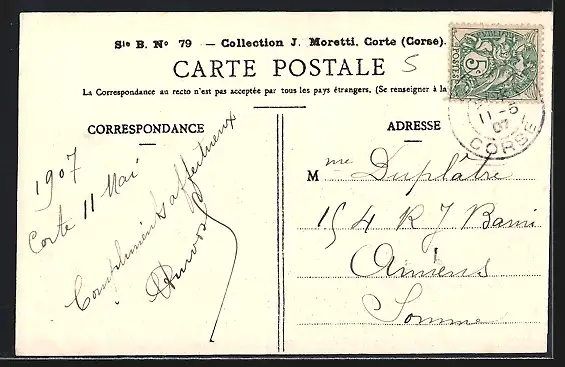 Sie B. No 79 — Collection J. Moretti, Corte (Corse).
CARTE POSTALE
5
La Correspondance au recto n'est pas acceptée par tous les pays étrangers, (Se renseigner à la
5c
POSTES
11-5
07
CORSE
CORRESPONDANCE
1907
Corte 11 Mai
Compliments affectueux
ADRESSE
Mme Duplâtre
154 R J Barni
Amiens
Somme